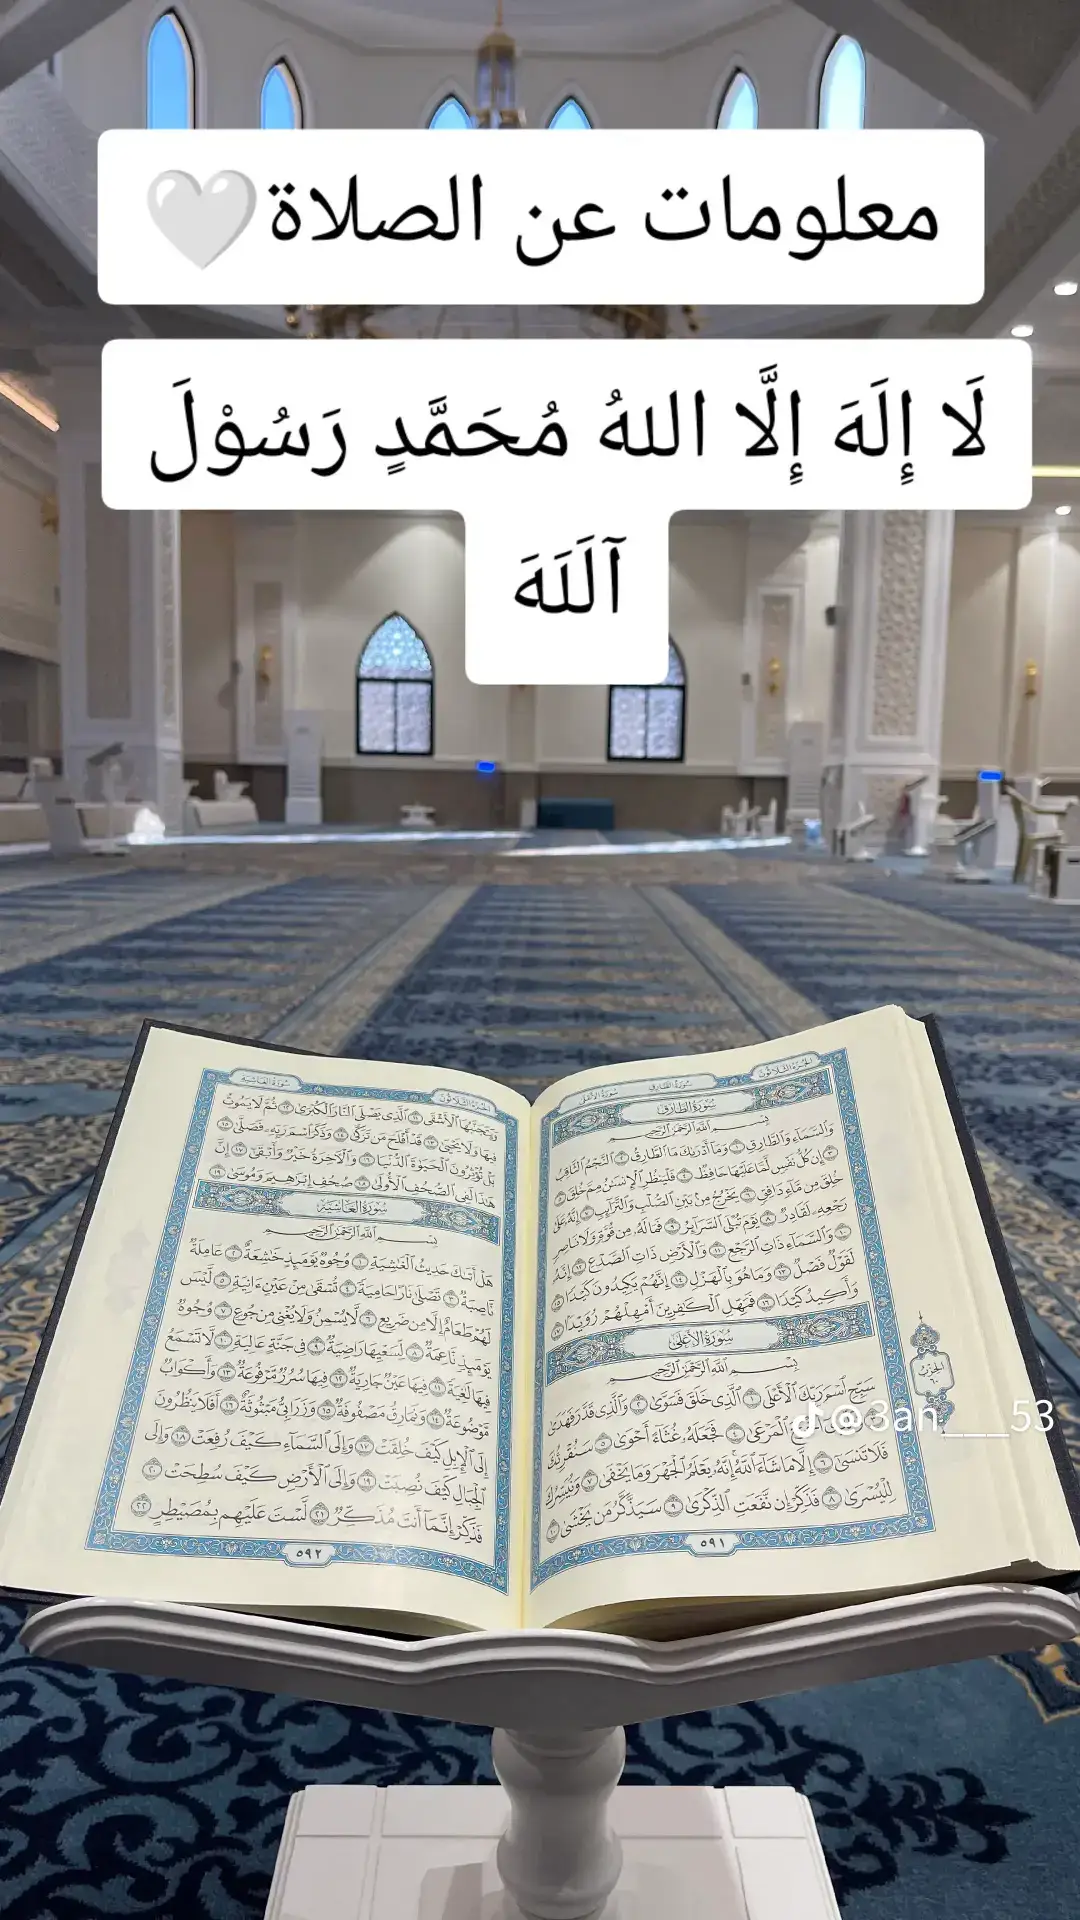 معلومات عن الصلاة🤍
لَا إِلَهَ إِلَّا اللهُ مُحَمَّدٍ رَسُوْلَ
آللَهَ
الجزء الثلاثون
سورة الطارق
سورة الأعلى
سورة الطارق
بسم الله الرحمن الرحيم
والسماء والطارق ١ وما أدراك ما الطارق ٢ النجم الثاقب
٣ إن كل نفس لما عليها حافظ ٤ فلينظر الإنسان مم خلق ٥
خلق من ماء دافق ٦ يخرج من بين الصلب والترائب ٧ إنه على
رجعه لقادر ٨ يوم تبلى السرائر ٩ فما له من قوة ولا ناصر
١٠ والسماء ذات الرجع ١١ والأرض ذات الصدع ١٢ إنه
لقول فصل ١٣ وما هو بالهزل ١٤ إنهم يكيدون كيدا ١٥
وأكيد كيدا ١٦ فمهل الكافرين أمهلهم رويدا ١٧
سورة الأعلى
بسم الله الرحمن الرحيم
سبح اسم ربك الأعلى ١ الذي خلق فسوى ٢ والذي قدر فهدى
المرعى ٤ فجعله غثاء أحوى ٥ سنقرئك
فلا تنسى ٦ إلا ما شاء الله إنه يعلم الجهر وما يخفى ٧ ونيسرك
لليسرى ٨ فذكر إن نفعت الذكرى ٩ سيذكر من يخشى ١٠
٥٩١
الحزب
@3an___53
سورة الغاشية
الجزء الثلاثون
ويتجنبها الأشقى ١١ الذي يصلى النار الكبرى ١٢ ثم لا يموت
فيها ولا يحيى ١٣ قد أفلح من تزكى ١٤ وذكر اسم ربه فصلى ١٥
بل تؤثرون الحيوة الدنيا ١٦ والآخرة خير وأبقى ١٧ إن
هذا لفي الصحف الأولى ١٨ صحف إبراهيم وموسى ١٩
سورة الغاشية
بسم الله الرحمن الرحيم
هل أتاك حديث الغاشية ١ وجوه يومئذ خاشعة ٢ عاملة
ناصبة ٣ تصلى نارا حامية ٤ تسقى من عين ءانية ٥ ليس
لهم طعام إلا من ضريع ٦ لا يسمن ولا يغني من جوع ٧ وجوه
يومئذ ناعمة ٨ لسعيها راضية ٩ في جنة عالية ١٠ لا تسمع
فيها لاغية ١١ فيها عين جارية ١٢ فيها سرر مرفوعة ١٣ وأكواب
موضوعة ١٤ ونمارق مصفوفة ١٥ وزرابي مبثوثة ١٦ أفلا ينظرون
إلى الإبل كيف خلقت ١٧ وإلى السماء كيف رفعت ١٨ وإلى
الجبال كيف نصبت ١٩ وإلى الأرض كيف سطحت ٢٠
فذكر إنما أنت مذكر ٢١ لست عليهم بمصيطر ٢٢
٥٩٢